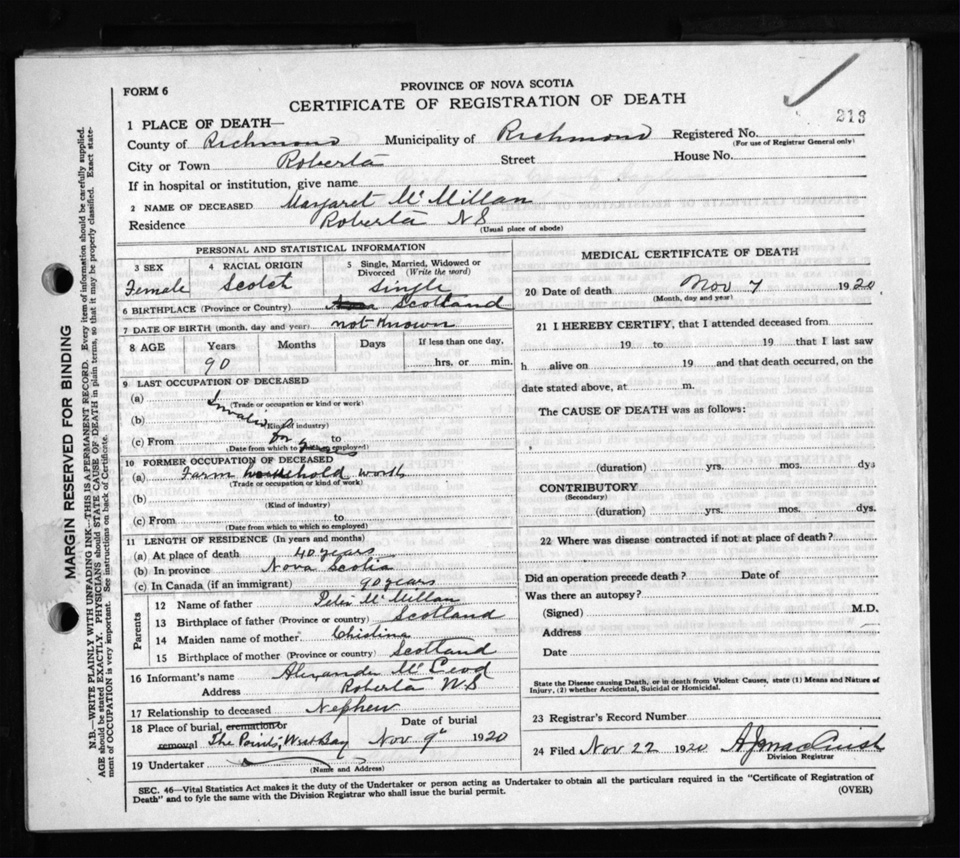 FORM 6
PROVINCE OF NOVA SCOTIA
CERTIFICATE OF REGISTRATION OF DEATH
213
1 PLACE OF DEATH—
County of Richmond Municipality of Richmond Registered No.
(For use of Registrar General only)
City or Town Roberta Street House No.
If in hospital or institution, give name
2 NAME OF DECEASED Margaret McMillan
Residence Roberta NS
(Usual place of abode)
PERSONAL AND STATISTICAL INFORMATION
3 SEX 4 RACIAL ORIGIN 5 Single, Married, Widowed or Divorced (Write the word)
Female Scotch Single
6 BIRTHPLACE (Province or Country) Scotland
7 DATE OF BIRTH (month, day and year) not Known
8 AGE Years Months Days If less than one day,
90 hrs. or min.
9 LAST OCCUPATION OF DECEASED
(a) Invalid
(Trade or occupation or kind of work)
(b)
(Kind of industry)
(c) From to
(Date from which to employed)
10 FORMER OCCUPATION OF DECEASED
(a) Farm household work
(Trade or occupation or kind of work)
(b)
(Kind of industry)
(c) From to
(Date from which to which so employed)
11 LENGTH OF RESIDENCE (In years and months)
(a) At place of death 40 years
(b) In province Nova Scotia
(c) In Canada (if an immigrant) 90 years
Parents
12 Name of father Peter McMillan
13 Birthplace of father (Province or country) Scotland
14 Maiden name of mother Chistina
15 Birthplace of mother (Province or country) Scotland
16 Informant's name Alexander McLeod
Address Roberta N.S
17 Relationship to deceased Nephew
18 Place of burial, cremation or removal The Points, West Bay
Date of burial Nov 9th 1920
19 Undertaker
(Name and Address)
MEDICAL CERTIFICATE OF DEATH
20 Date of death Nov 7 1920
(Month, day and year)
21 I HEREBY CERTIFY, that I attended deceased from
19 to 19 that I last saw
h alive on 19 and that death occurred, on the
date stated above, at m.
The CAUSE OF DEATH was as follows:
(duration) yrs. mos. dys
CONTRIBUTORY
(Secondary)
(duration) yrs. mos. dys.
22 Where was disease contracted if not at place of death?
Did an operation precede death? Date of
Was there an autopsy?
(Signed) M.D.
Address
Date
State the Disease causing Death, or in death from Violent Causes, state (1) Means and Nature of
Injury, (2) whether Accidental, Suicidal or Homicidal.
23 Registrar's Record Number
24 Filed Nov 22 1920 A J MacCuish
Division Registrar
SEC. 46—Vital Statistics Act makes it the duty of the Undertaker or person acting as Undertaker to obtain all the particulars required in the "Certificate of Registration of
Death" and to fyle the same with the Division Registrar who shall issue the burial permit. (OVER)
MARGIN RESERVED FOR BINDING
N.B.—WRITE PLAINLY WITH UNFADING INK—THIS IS A PERMANENT RECORD. Every item of information should be carefully supplied.
AGE should be stated EXACTLY. PHYSICIANS should STATE CAUSE OF DEATH in plain terms, so that it may be properly classified. Exact state-
ment of OCCUPATION is very important. See instructions on back of Certificate.